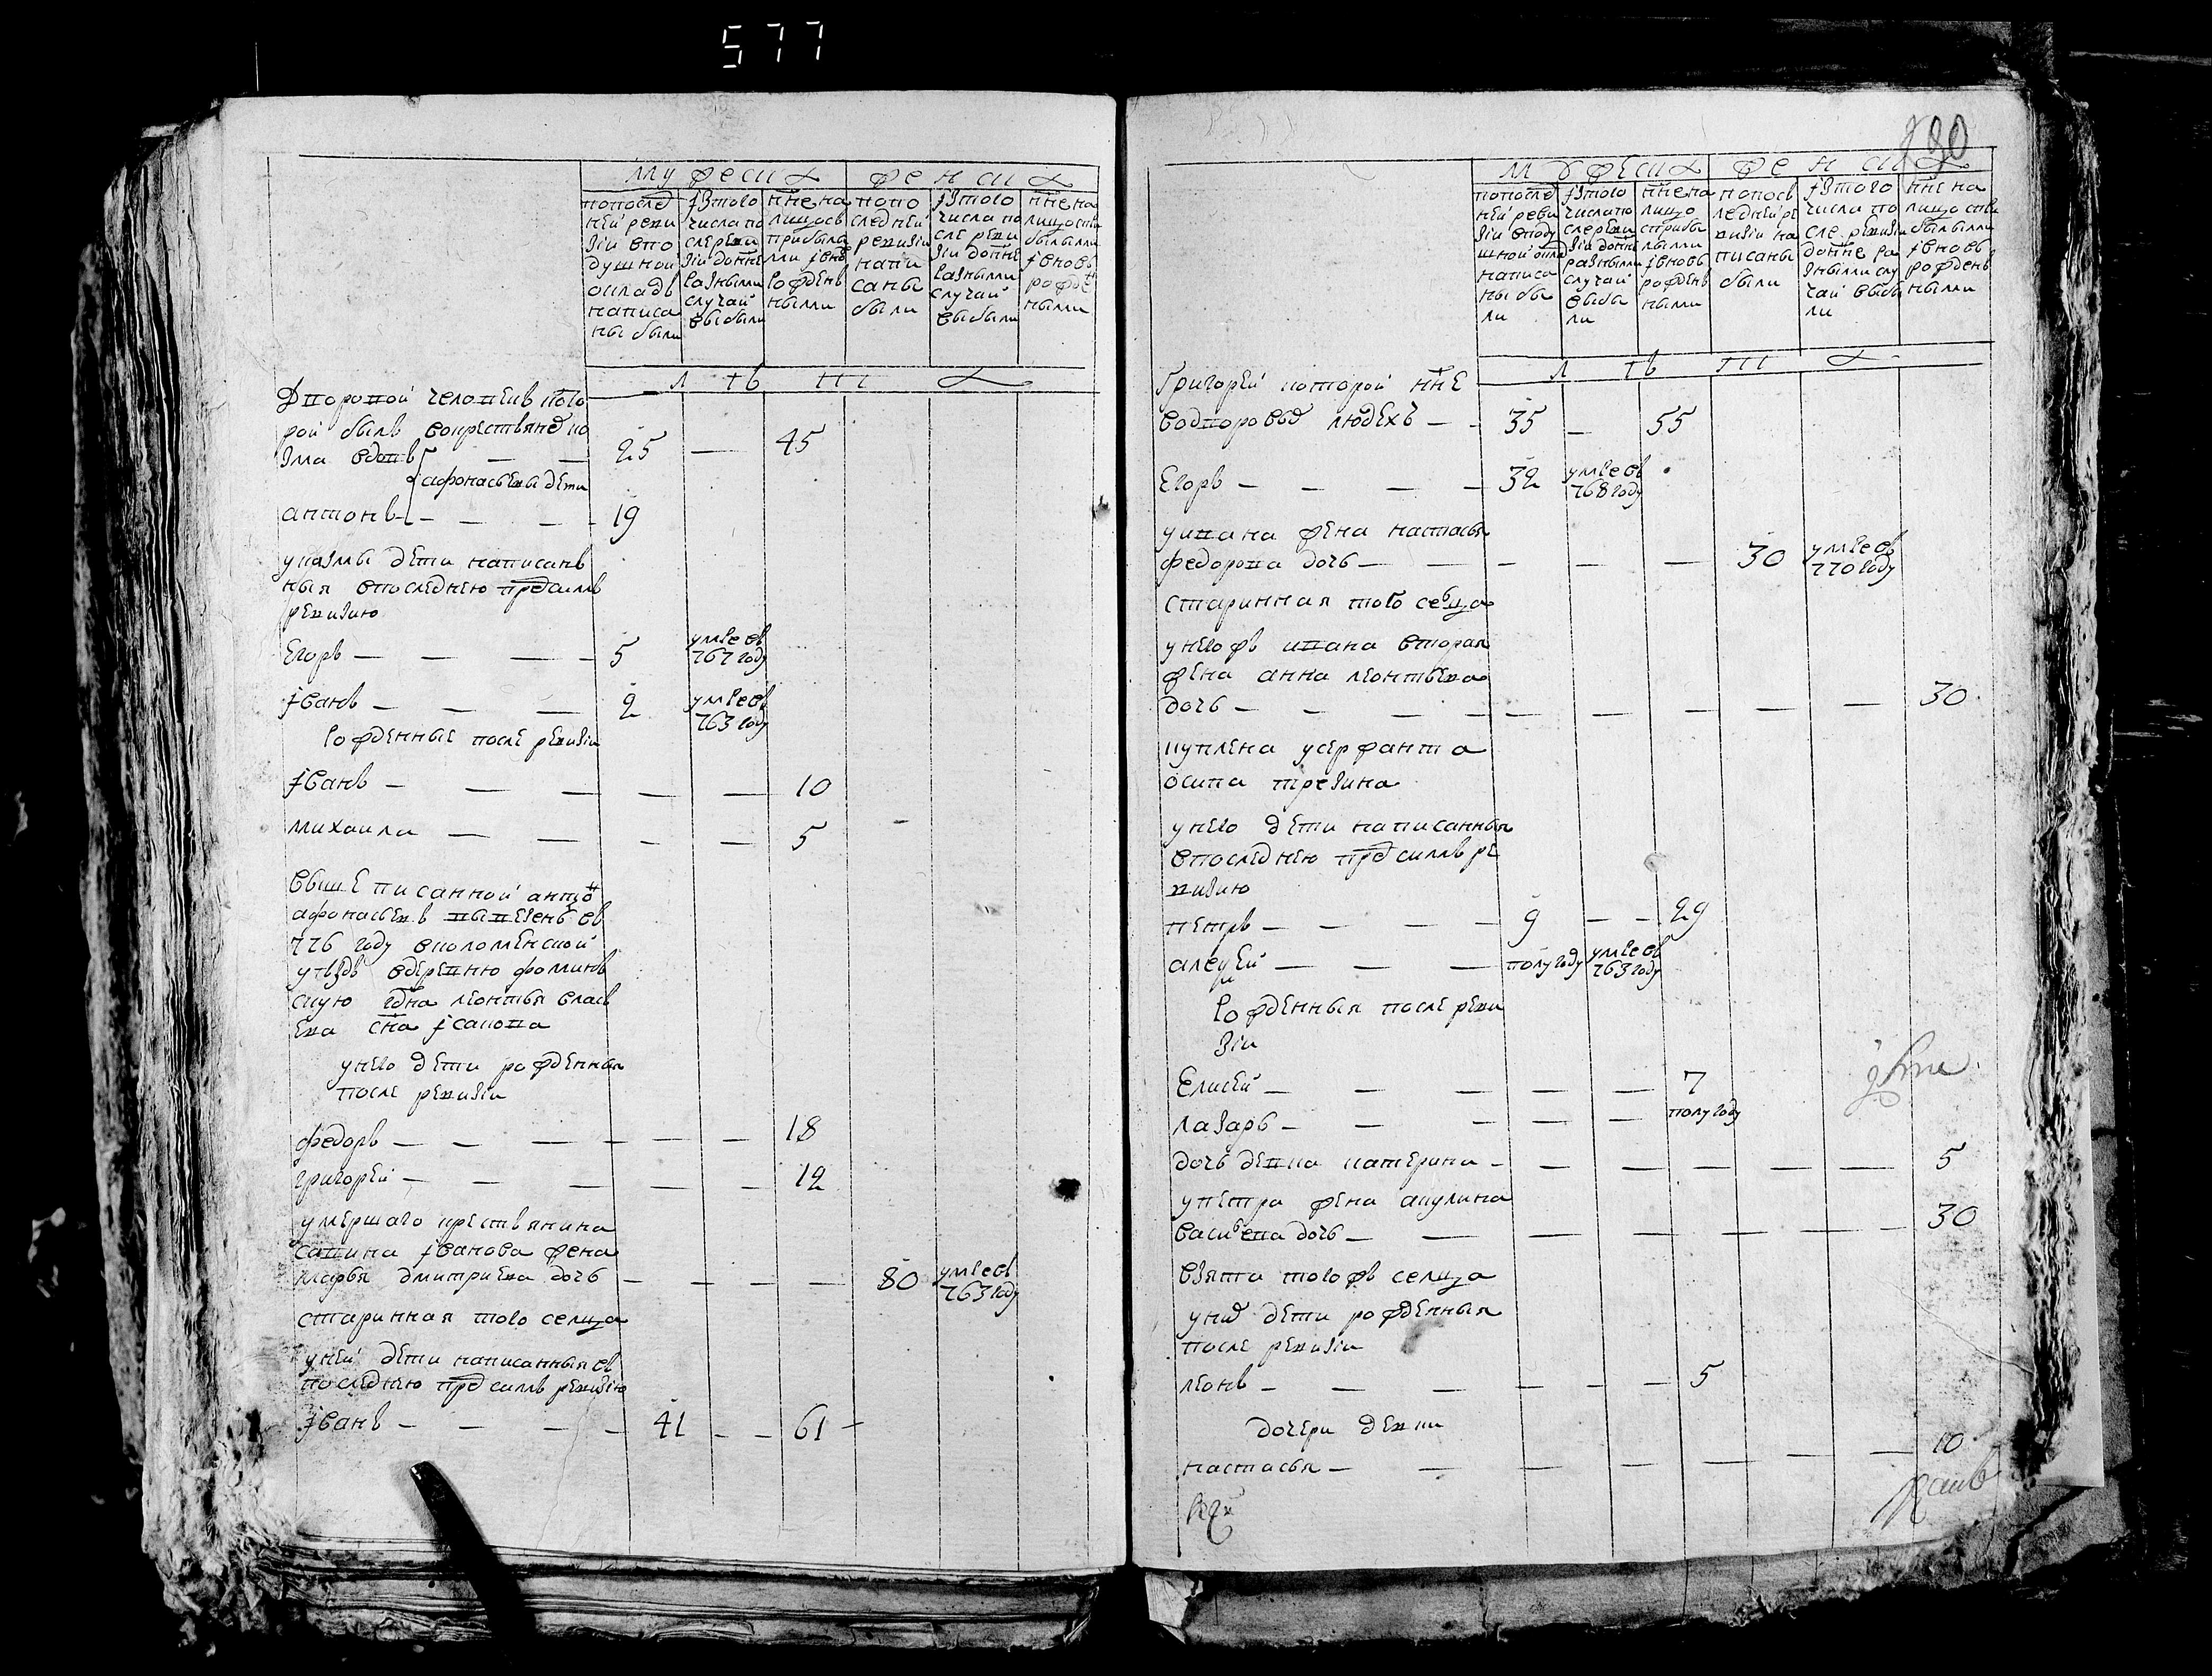 577
мужеска женска
попослед
ней реви
зiи впо
душной
окладъ
написа
ны были
iзтого
числа по
слереви
зiи доннѣ
разными
случаи
выбыли
ннѣ на
лицосъ
прибыли
ми iвно
рожден
ными
попо
следней
ревизiи
напи
саны
были
iзтого
числа по
сле реви
зiи доннѣ
разными
случаи
выбыли
ннѣ на
лицо
iвновь
рожден
ными
л ѣ т а
Дворовой человекъ кото
рой былъ вокрестьянехъ ко
зма вдовъ — — 25 — 45
афонасьевы дети
антонъ — — — 19
укозмы дети написанъ
ныя впоследнею предсимъ
ревизию
Егоръ — — — 5 умре въ 767 году
iванъ — — — 2 умре въ 763 году
рожденные после ревизiи
iванъ — — — — — 10
михаила — — — — 5
вышеписанной антонъ
афонасьевъ вывезенъ въ
776 году вколоменской
уѣздъ вдеревню фомин
скую гдна леонтья влась
ева сна iсакова
унего дети рожденныя
после ревизiи
федоръ — — — — — — 18
григорей — — — — — 12
умершаго крестьянина
савина iванова жена
марья дмитриева дочь — — — — 80 умре въ 763 году
старинная того сельца
уней дети написанныя въ
последнею предсимъ ревизiю
iванъ — — — — 41 — — 61
мужеска женска
попослед
ней реви
зiи вподу
шной окла
написа
ны бы
ли
iзтого
числапо
слереви
зiи доннѣ
разными
случаи
выбы
ли
ннѣ на
лицо
сприбы
лыми
iвновь
рожден
ными
попосъ
ледней ре
визiи на
писаны
были
iзтого
числа по
сле ревизiи
доннѣ ра
зными слу
чаи выбы
ли
ннѣ на
лицо
iвновь
рожден
ными
л ѣ т а
Григорей которой ннѣ
водворовыхъ людехъ — — 35 — 55
Егоръ — — — — 32 умре въ 768 году
уивана жена настасья
федорова дочь — — — — — 30 умре въ 770 году
старинная того сельца
унегожъ ивана вторая
жена анна леонтьева
дочь — — — — — — — — — 30
куплена усержанта
осипа трезина
унего дети написанныя
впоследнею предсимъ ре
визию
петръ — — — — 9 — — 29
алексей — — — полугоду умре въ 763 году
рожденныя после реви
зiи
Елисей — — — — — 7
лазарь — — — — — полугоду
дочь девка катерина — — — — — — — 5
упетра жена акулина
васильева дочь — — — — — — — 30
взята тогожъ сельца
унихъ дети рожденныя
после ревизiи
леонъ — — — — — — 5
дочери девки
настасья — — — — — — — 10